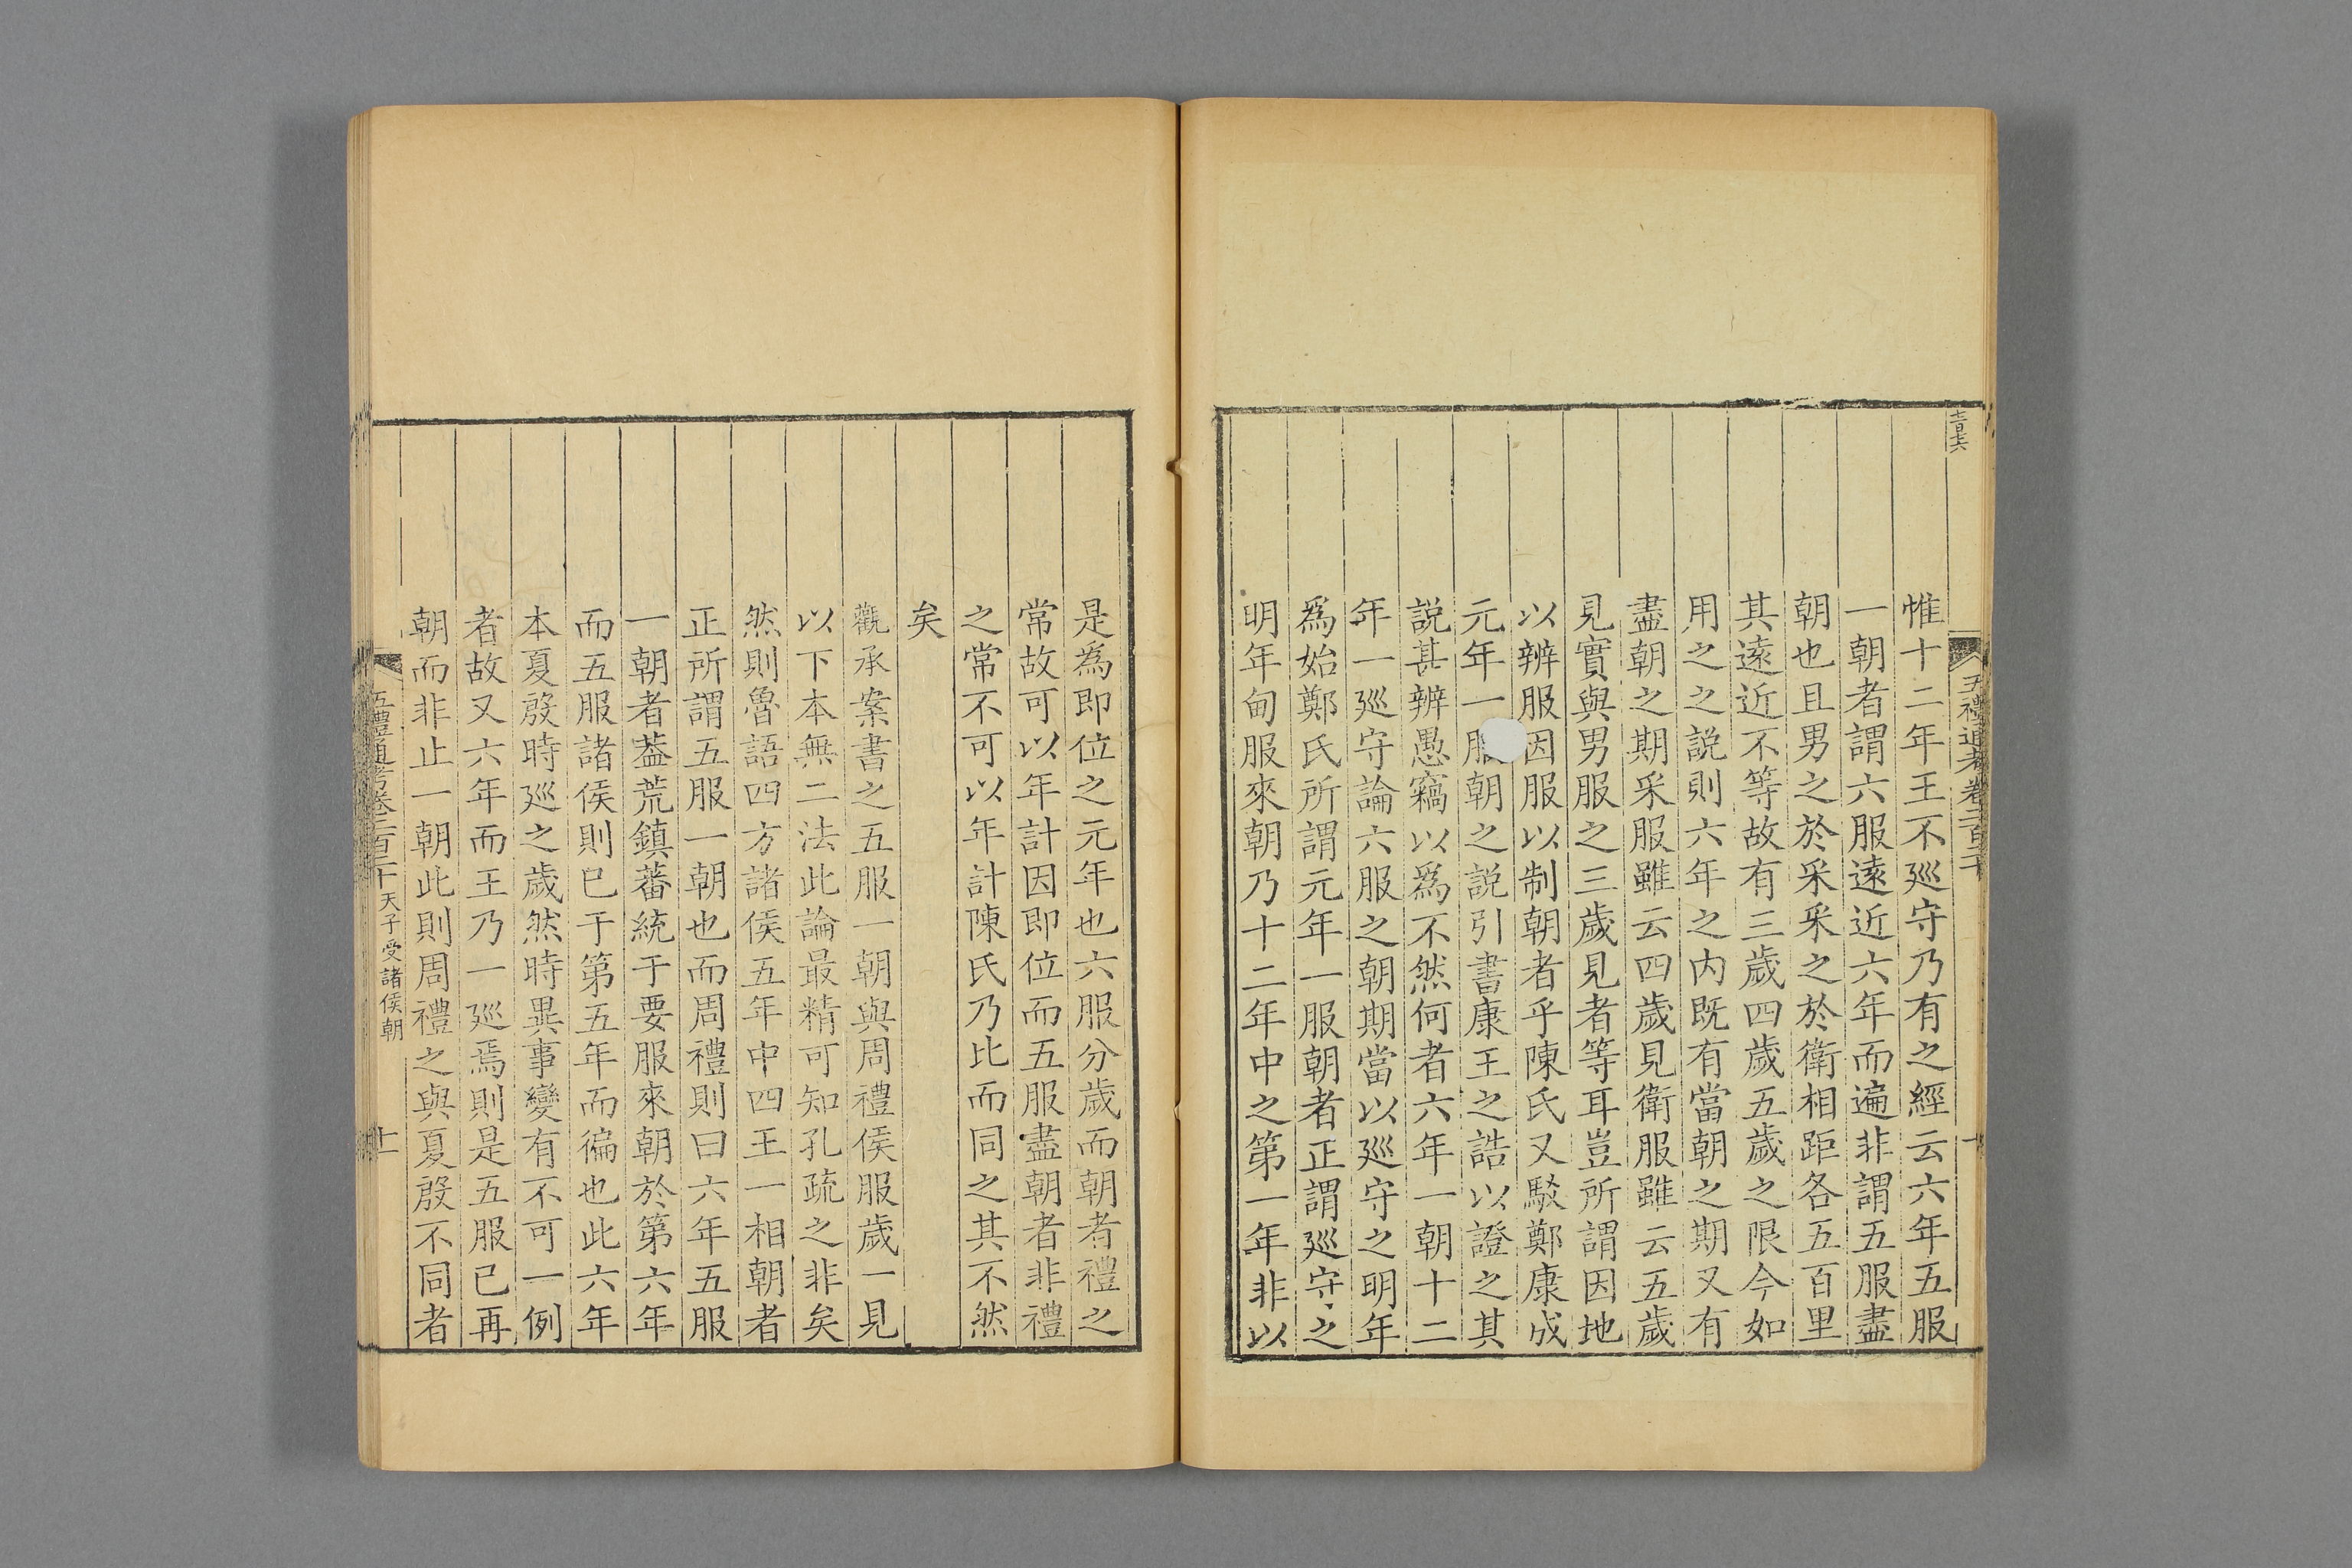 五禮通考卷二百二十
惟十二年王不廵守乃有之經云六年五服
一朝者謂六服遠近六年而遍非謂五服盡
朝也且男之於采采之於衛相距各五百里
其遠近不等故有三歲四歲五歲之限今如
用之之説則六年之内既有當朝之期又有
盡朝之期采服雖云四歲見衛服雖云五歲
見實與男服之三歲見者等耳豈所謂因地
以辨服因服以制朝者乎陳氏又駁鄭康成
元年一服朝之説引書康王之誥以證之其
説甚辨愚竊以爲不然何者六年一朝十二
年一廵守論六服之朝期當以廵守之明年
爲始鄭氏所謂元年一服朝者正謂廵守之
明年甸服來朝乃十二年中之第一年非以
是爲即位之元年也六服分歲而朝者禮之
常故可以年計因即位而五服盡朝者非禮
之常不可以年計陳氏乃比而同之其不然
矣
觀承案書之五服一朝與周禮侯服歲一見
以下本無二法此論最精可知孔疏之非矣
然則魯語四方諸侯五年中四王一相朝者
正所謂五服一朝也而周禮則曰六年五服
一朝者葢荒鎮蕃統于要服來朝於第六年
而五服諸侯則已于第五年而徧也此六年
本夏殷時廵之歲然時異事變有不可一例
者故又六年而王乃一廵焉則是五服已再
朝而非止一朝此則周禮之與夏殷不同者
五禮通考卷二百二十 天子受諸侯朝 十一